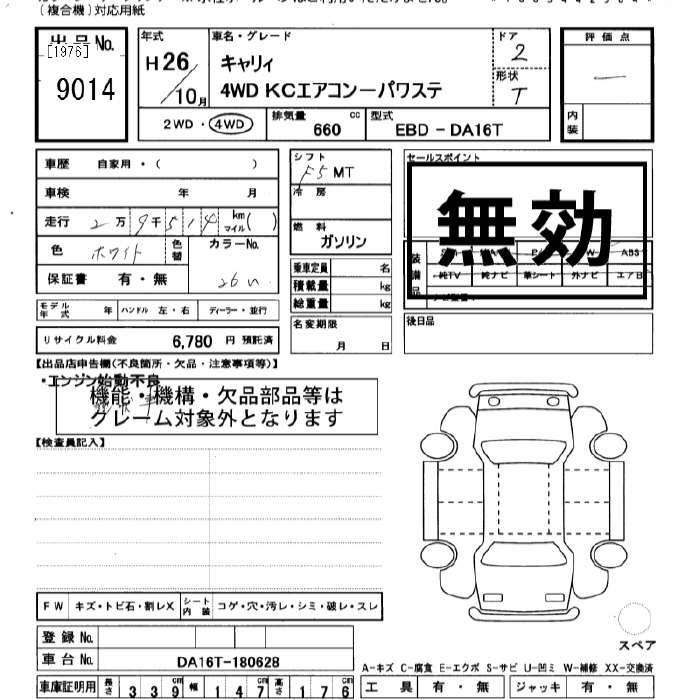 (複合機)対応用紙
出品No.
[1976]
9014
年式
H26/10月
車名・グレード
キャリィ
4WD KCエアコンーパワステ
ドア
2
形状
T
評価点
内装
2WD・4WD
排気量 660 cc
型式 EBD-DA16T
車歴 自家用・( )
車検 年 月
走行 2万9千514 km マイル( )
色 ホワイト 色替 カラーNo. 26U
保証書 有・無
モデル年式 年 ハンドル 左・右 ディーラー・並行
リサイクル料金 6,780 円 預託済
シフト F5 MT
冷房
燃料 ガソリン
乗車定員 名
積載量 kg
総重量 kg
名変期限
月 日
セールスポイント
無効
装備品
ABS
純TV 純ナビ 革シート 外ナビ エアB
後日品
【出品店申告欄(不良箇所・欠品・注意事項等)】
・エンジン始動不良
機能・機構・欠品部品等は
クレーム対象外となります
【検査員記入】
FW キズ・トビ石・割レX シート内装 コゲ・穴・汚レ・シミ・破レ・スレ
登録No.
車台No. DA16T-180628
スペア
A-キズ C-腐食 E-エクボ S-サビ U-凹ミ W-補修 XX-交換済
車庫証明用 長さ 339cm 幅 147cm 高さ 176cm
工具 有・無 ジャッキ 有・無